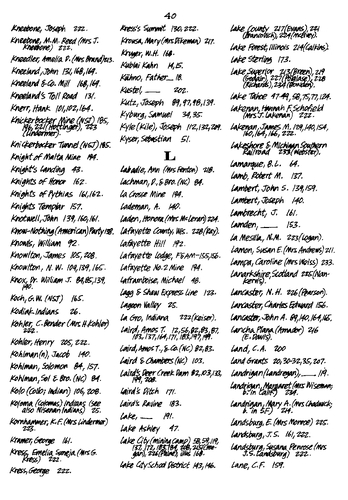 40
Kneebone, Joseph 222.
Kneebone, M.M. Reed (Mrs. J.
Kneebone) 222.
Kneeland, John
Kneeland & Co. Mill 168, 169.
Kneeland's Toll Road 131.
Knerr, Hank 101, 102, 164.
Knickerbocker Mine (NSJ) 185,
Knickerbocker Tunnel (NSJ) 185.
Knight of Malta Mine 194.
Knight's Landing 43.
Knights of Honor 162.
Knights of Pythias 161, 162.
Knights Templar 157.
Knotwell, John 139, 160, 161.
Know-Nothing (American) Party 198.
Knowls, William 92.
Knowlton, James 105, 208.
Knowlton, N.W. 104, 139, 165.
Knox, Dr. William J. 84, 85, 139,
Koch, G.W. (NSJ) 165.
Kodiak Indians 26.
Kohler, C. Bender (Mrs. H. Kohler)
222.
Kohler, Henry 205, 222.
Kohlman(n), Jacob 140.
Kohlman, Solomon 84, 157.
Kohlman, Sol & Bro. (NC) 84.
Kolo (Collo; Indian) 106, 208.
Koloma (Colomas) Indians (see
also Nisenan Indians) 25.
Kornhammer, K.F. (Mrs. Lindermer)
223.
Kramer, George 161.
Kress, Emelia, Soneja (Mrs. G.
Kress) 222.
Kress, George 222.
Kress's Summit 130, 222.
Krouse, Mary (Mrs. Dikeman) 217.
Kruger, W.H. 168.
Kublai Kahn 14, 15.
Kühno, Father__ 18.
Kustel, __ 202.
Kutz, Joseph 89, 97, 98, 139.
Kyburg, Samuel 34, 35.
Kyle (Kile), Joseph 112, 132, 209.
Kyser, Sebastian 51.
L
Labadie, Ann (Mrs. Fenton) 218.
Lachman, P., & Bro. (NC) 84.
La Crosse Mine 194.
Lademan, A. 140.
Laden, Honora (Mrs. McLeran) 224.
Lafayette County, Wis. 228 (Rey).
Lafayette Hill 192.
Lafayette Lodge, F&AM-155, 156.
Lafayette No. 2 Mine 194.
Lafranboise, Michael 48.
Lagg & Shaw Express Line 123.
Lagoon Valley 25.
La Gro, Indiana 222 (Keiser).
Laird, Amos T. 12, 56, 82, 83, 87,
133, 137, 164, 171, 183, 197, 199.
Laird, Amos T., & Co. (NC) 82, 83.
Laird & Chambers (NC) 103.
Laird's Deer Creek Dam 82, 103, 133,
199, 208.
Laird's Ditch 171.
Laird's Ravine 183.
Lake, __ 191.
Lake Ashley 47.
Lake City (mining camp) 58, 59, 119,
Lake City School District 143, 146.
Lake County 217 (Evans), 221
Lake Forest, Illinois 214 (Calkins).
Lake Sterling 173.
Lake Superior 213 (Breen), 219
Lake Tahoe 47-49, 58, 75, 77, 124.
Lakenan, Hannah F. Schofield
(Mrs. J. Lakenan) 222.
Lakenan, James M. 109, 140, 154,
160, 164, 166, 222.
Lakeshore & Michigan Southern
Railroad 233 (Webster).
Lamarque, B.L. 64.
Lamb, Robert M. 137.
Lambert, John S. 139, 159.
Lambert, Joseph 140.
Lambrecht, J. 161.
Lamden, __ 153.
La Mesilla, N.M. 223 (Logan).
Lamon, Susan E. (Mrs. Andrew) 211.
Lampa, Caroline (Mrs. Weiss) 233.
Lanarkshire, Scotland 225 (Nankervis).
Lancaster, N.H. 226 (Pearson).
Lancaster, Charles Edward 156.
Lancaster, John A. 89, 140, 164, 165.
Lancha Plana (Amador) 216
(E. Davis).
Land, C.A. 200
Land Grants 20, 30-32, 35, 207.
Landrigan (Landregan), __ 119.
Landrigan, Margaret (Mrs. Wiseman;
b. in Calif) 234.
Landrigan, Mary A. (Mrs. Chadwick;
b. in SF) 214.
Landsburg, E. (Mrs. Monroe) 225.
Landsburg, J.S. 161, 222.
Landsburg, Susana Penrose (Mrs.
J.S. Landsburg) 222.
Lane, C.F. 159.